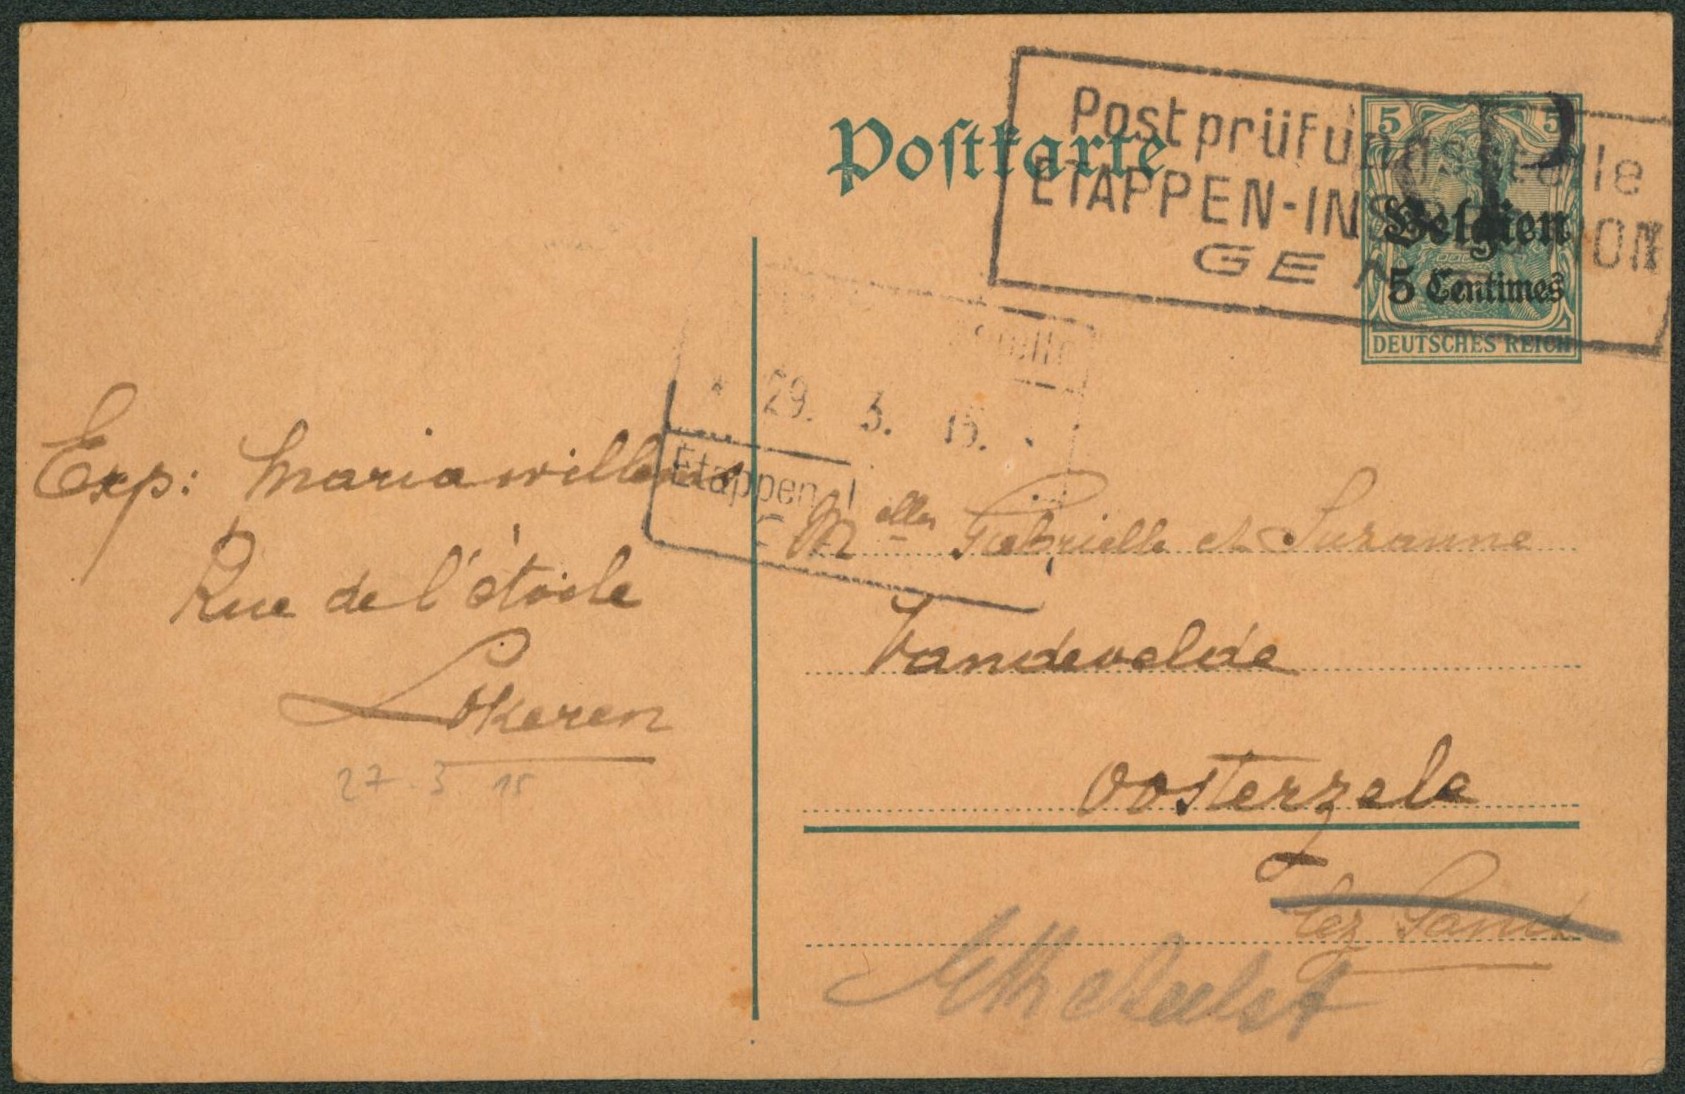 Postkarte
Postprüfungsstelle
ETAPPEN-INSPEKTION
GENT
5 5
Belgien
5 Centimes
DEUTSCHES REICH
29. 3. 15.
Etappen-I
Exp: Maria Willems
Rue de l'étoile
Lokeren
27.3 15
Melles Gabrielle et Suzanne
Vandevelde
Oosterzele
lez Gand